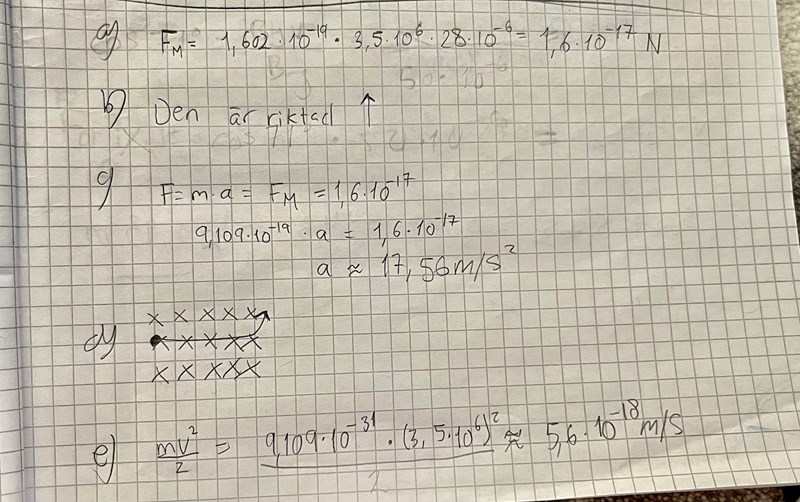 a) F_M = 1,602·10^-19 · 3,5·10^6 · 28·10^-6 = 1,6·10^-17 N
b) Den är riktad ↑
c) F = m·a = F_M = 1,6·10^-17
9,109·10^-19 · a = 1,6·10^-17
a ≈ 17,56 m/s^2
x x x x x
d) x x x x x
x x x x x
e) mv^2/2 = 9,109·10^-31 · (3,5·10^6)^2 / 2 ≈ 5,6·10^-18 m/s